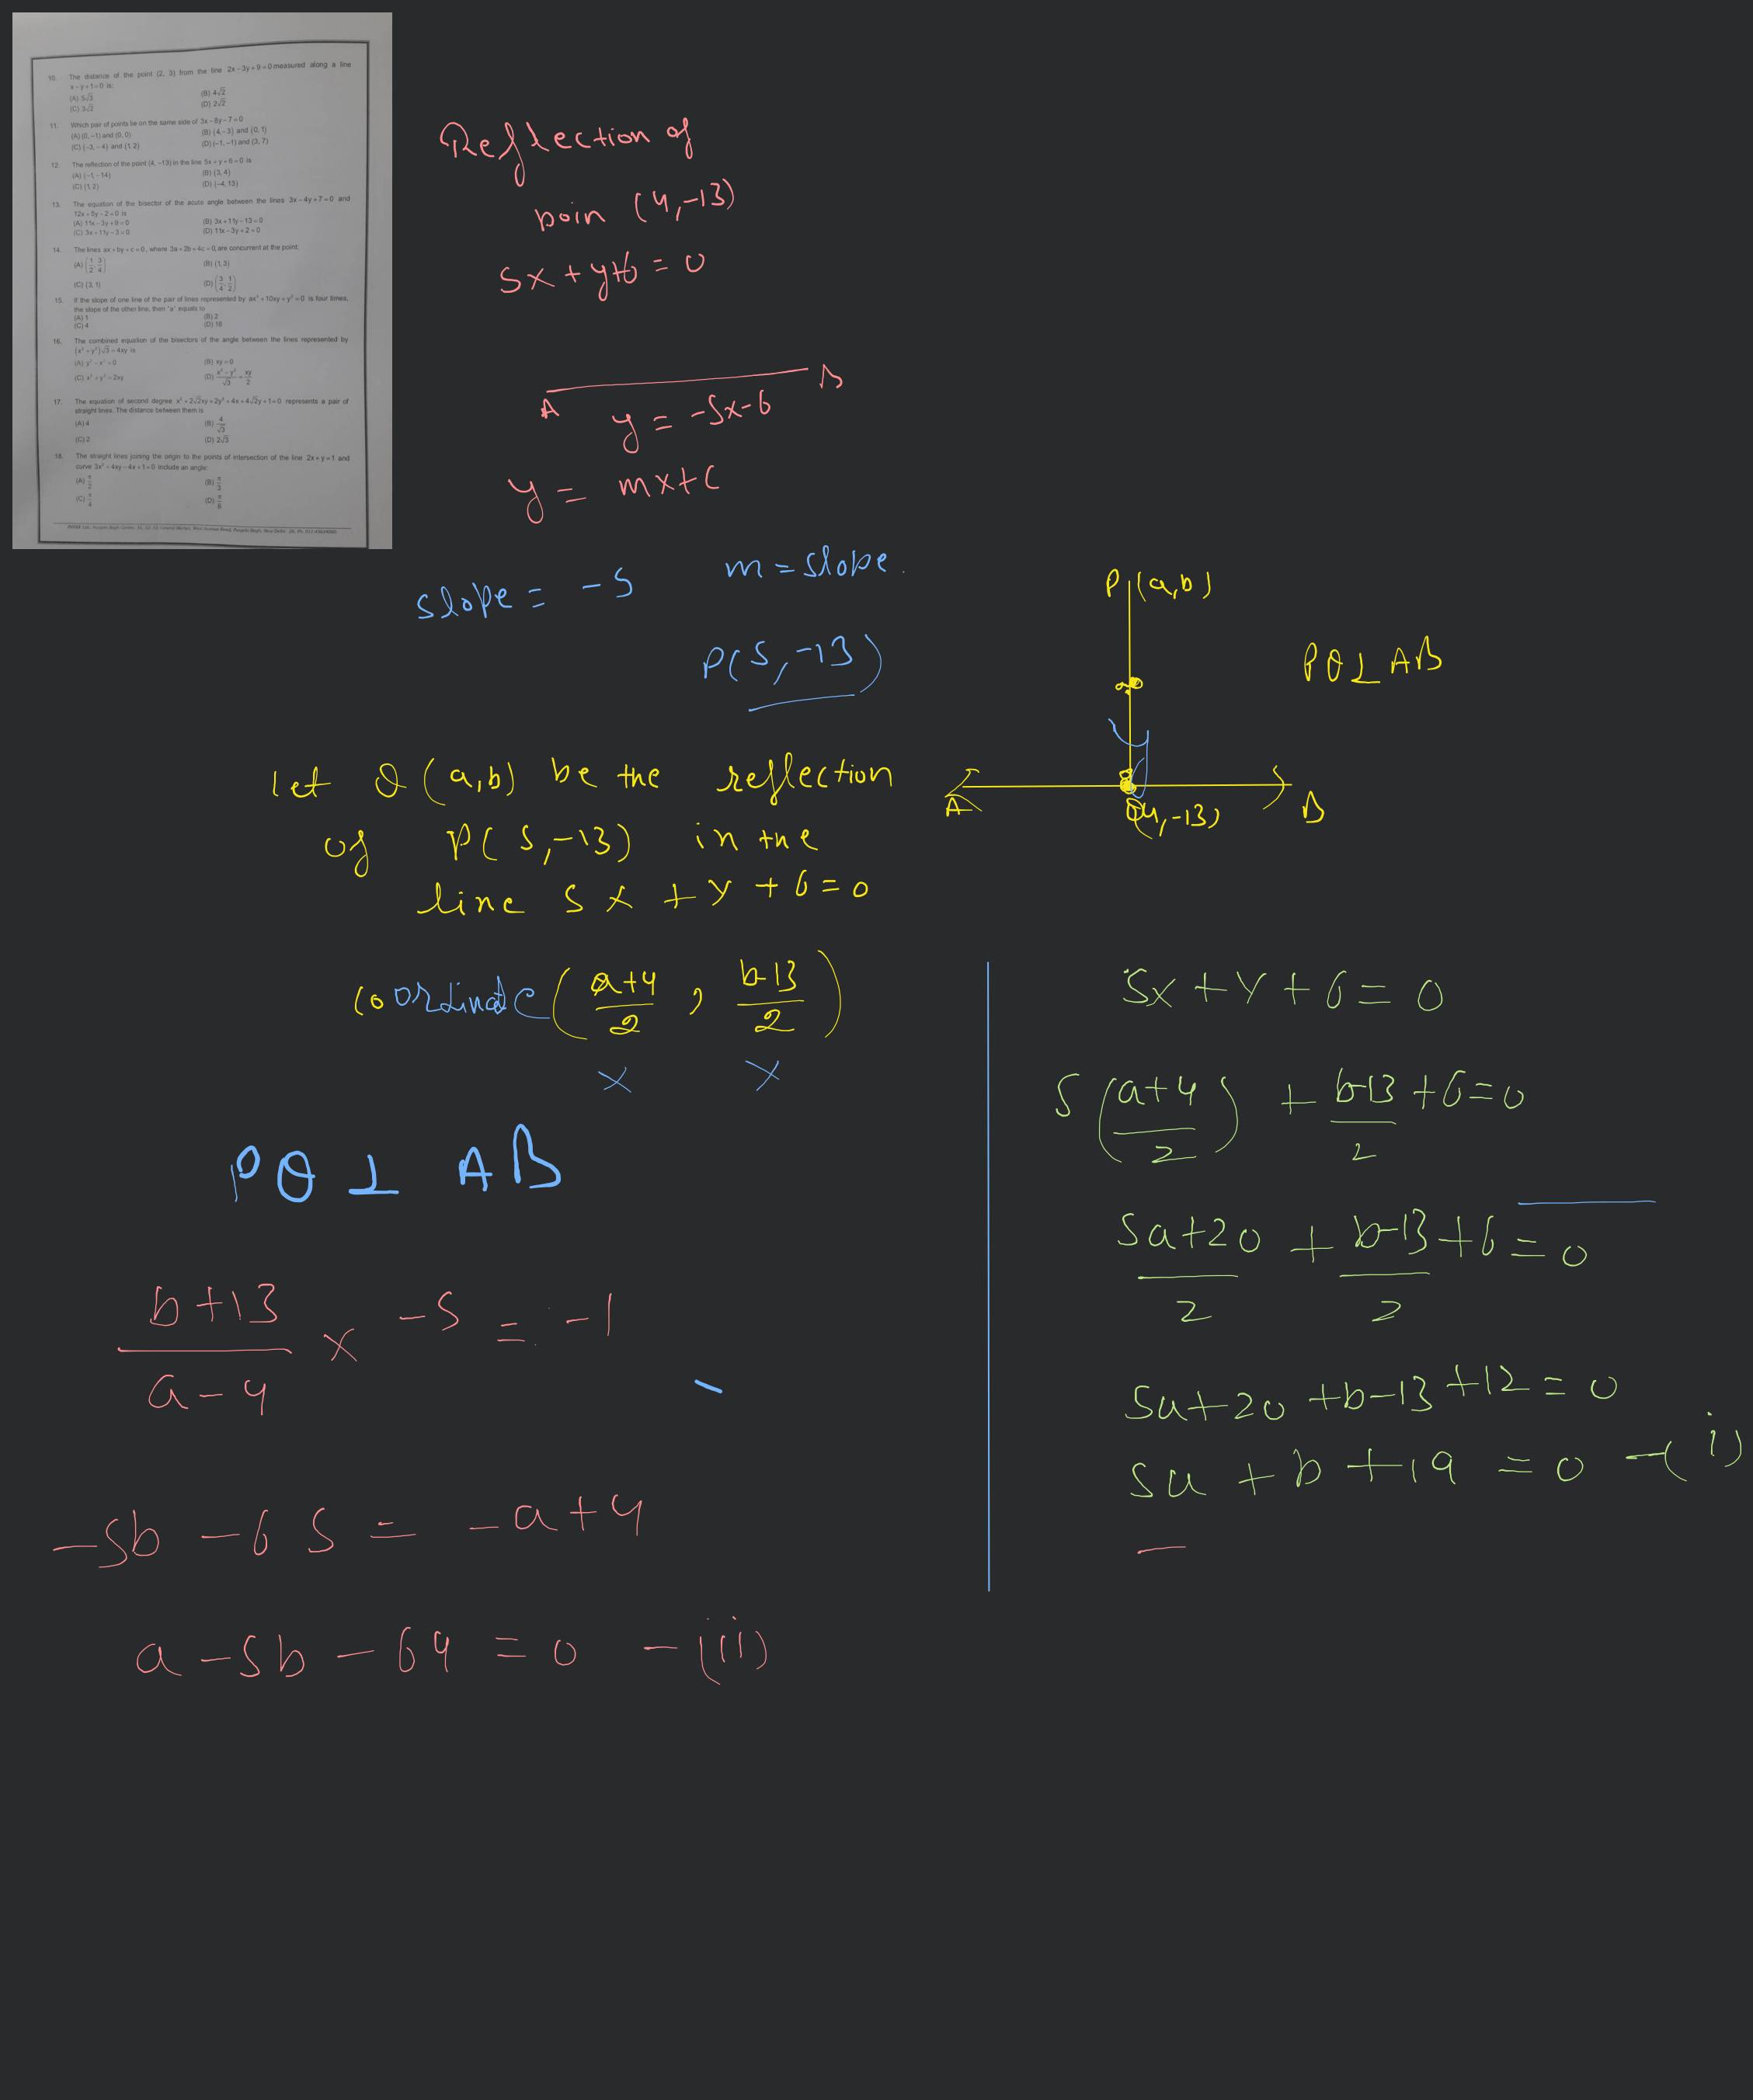 10. The distance of the point (2, 3) from the line 2x – 3y + 9 = 0 measured along a line
x – y + 1 = 0 is:
(A) 5√3 (B) 4√2
(C) 3√2 (D) 2√2
11. Which pair of points lie on the same side of 3x – 8y – 7 = 0
(A) (0, –1) and (0, 0) (B) (4, –3) and (0, 1)
(C) (–3, –4) and (1, 2) (D) (–1, –1) and (3, 7)
12. The reflection of the point (4, –13) in the line 5x + y + 6 = 0 is
(A) (–1, –14) (B) (3, 4)
(C) (1, 2) (D) (–4, 13)
13. The equation of the bisector of the acute angle between the lines 3x – 4y + 7 = 0 and
12x + 5y – 2 = 0 is
(A) 11x – 3y + 9 = 0 (B) 3x + 11y – 13 = 0
(C) 3x + 11y – 3 = 0 (D) 11x – 3y + 2 = 0
14. The lines ax + by + c = 0, where 3a + 2b + 4c = 0, are concurrent at the point:
(A) (1/2, 3/4) (B) (1, 3)
(C) (3, 1) (D) (3/4, 1/2)
15. If the slope of one line of the pair of lines represented by ax² + 10xy + y² = 0 is four times,
the slope of the other line, then 'a' equals to
(A) 1 (B) 2
(C) 4 (D) 16
16. The combined equation of the bisectors of the angle between the lines represented by
(x² + y²)√3 = 4xy is
(A) y² – x² = 0 (B) xy = 0
(C) x² + y² = 2xy (D) (x² – y²)/√3 = xy/2
17. The equation of second degree x² + 2√2xy + 2y² + 4x + 4√2y + 1 = 0 represents a pair of
straight lines. The distance between them is
(A) 4 (B) 4/√3
(C) 2 (D) 2√3
18. The straight lines joining the origin to the points of intersection of the line 2x + y = 1 and
curve 3x² + 4xy – 4x + 1 = 0 include an angle:
(A) π/2 (B) π/3
(C) π/4 (D) π/6
Reflection of
poin (4,-13)
5x + y+6 = 0
A B
y = -5x-6
y = mx+c
slope = -5 m = slope.
P(5,-13)
P (a,b)
PQ ⊥ AB
A Q(4,-13) B
Let Q (a,b) be the reflection
of P(5,-13) in the
line 5x + y + 6 = 0
coordinate (a+4/2 , b-13/2)
x y
PQ ⊥ AB
b+13/a-4 × -5 = -1
-5b -65 = -a+4
a -5b - 64 = 0 -(ii)
5x + y + 6 = 0
5(a+4/2) + b-13/2 + 6 = 0
5a+20/2 + b-13/2 + 6 = 0
5a+20 + b-13 + 12 = 0
5a + b + 19 = 0 -(i)